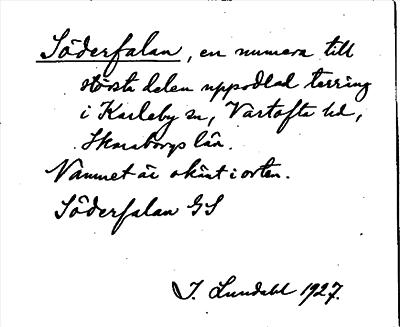 Söderfalan, en numera till
största delen uppodlad terräng
i Karleby sn, Vartofta hd,
Skaraborgs län.
Namnet är okänt i orten.
Söderfalan GS
J. Lundahl 1927.